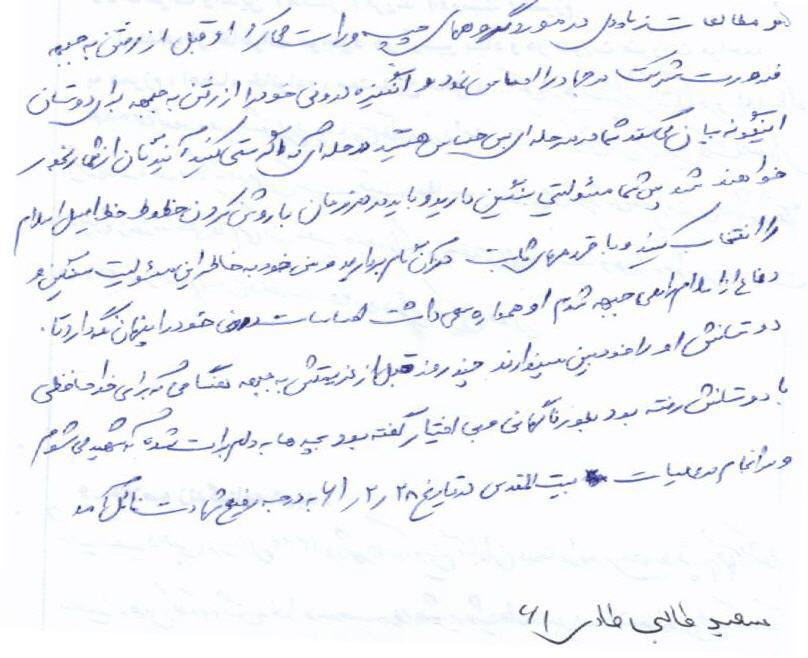 و مطالعات زیادی در مورد گروههای چپ و راست می کرد او قبل از رفتن به جبهه
ضرورت شرکت در جهاد را احساس نمود و انگیزه درونی خود را از رفتن به جبهه برای دوستان
اینگونه بیان می کند شما در مرحله ای بس حساس هستید مرحله ای که اگر سستی کنید آیندگان از شما
خواهند شد پس شما مسئولیتی سنگین دارید و باید در هر زمان با روشن کردن خطوط خط اصیل اسلام
را انتخاب کنید و با قدمهای ثابت در آن گام بردارید و من خود به خاطر این مسئولیت سنگین و
دفاع از اسلام راهی جبهه شدم او همواره سعی داشت احساسات درونی خود را پنهان نگه دارد تا
دوستانش او را خودبین نپندارند چند روز قبل از عزیمتش به جبهه هنگامی که برای خداحافظی
با دوستانش رفته بود بطور ناگهانی و بی اختیار گفته بود بچه ها به دلم برات شده که شهید می شوم
و سرانجام در عملیات بیت المقدس در تاریخ ۲۸ ر ۲ ر ۶۱ به درجه رفیع شهادت نائل آمد
سعید طالبی طادی ۶۱